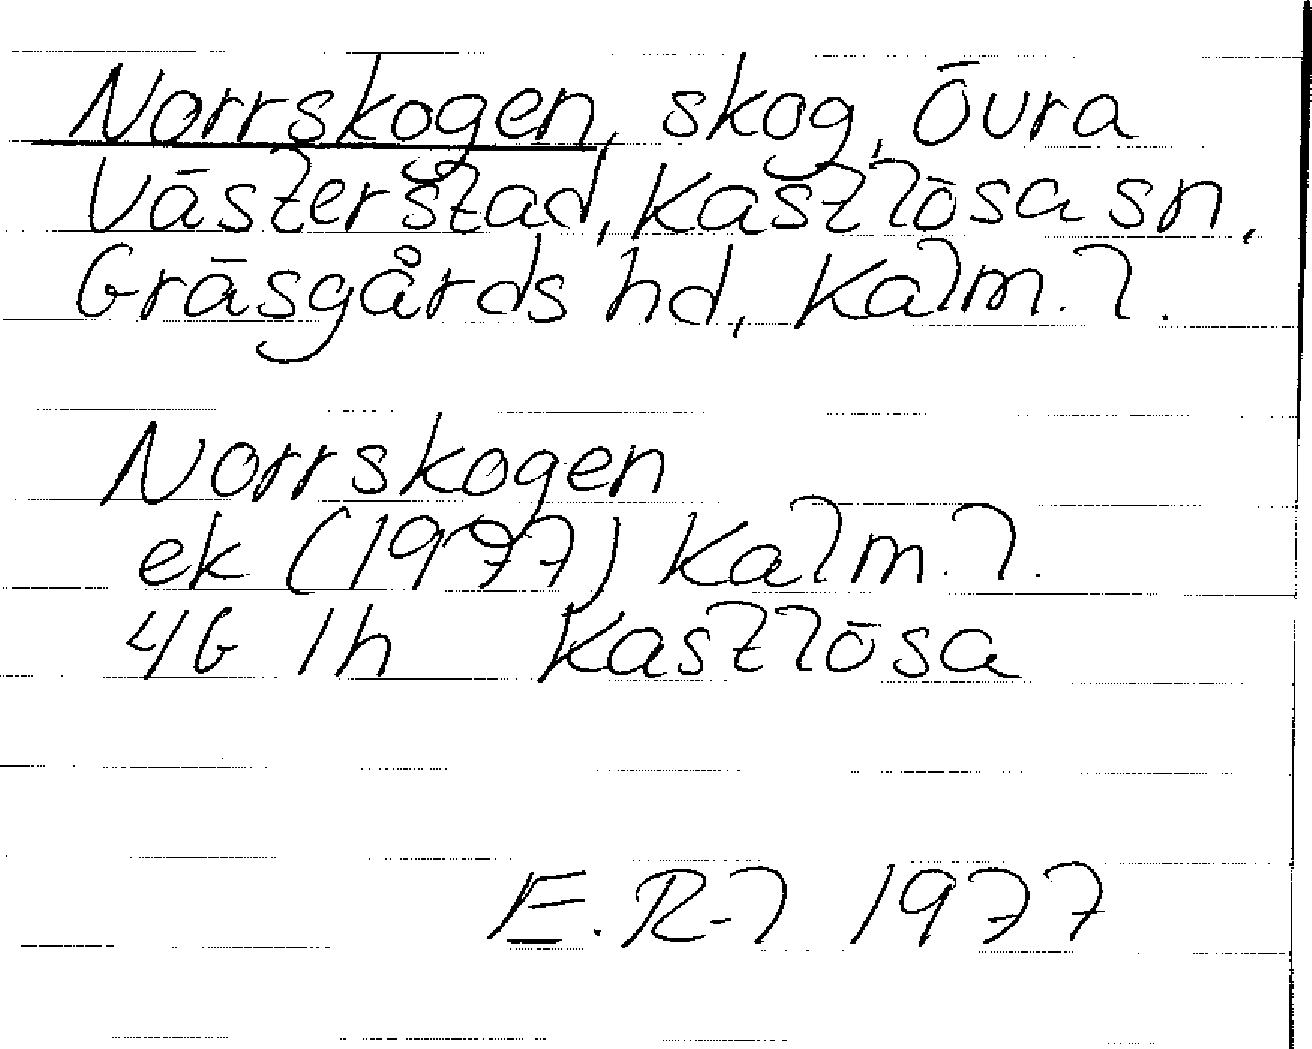 Norrskogen, skog, Övra
Västerstad, Kastlösa sn,
Gräsgårds hd, Kalm. l.
Norrskogen
ek (1977) Kalm. l.
4G 1h Kastlösa
E. R-l 1977